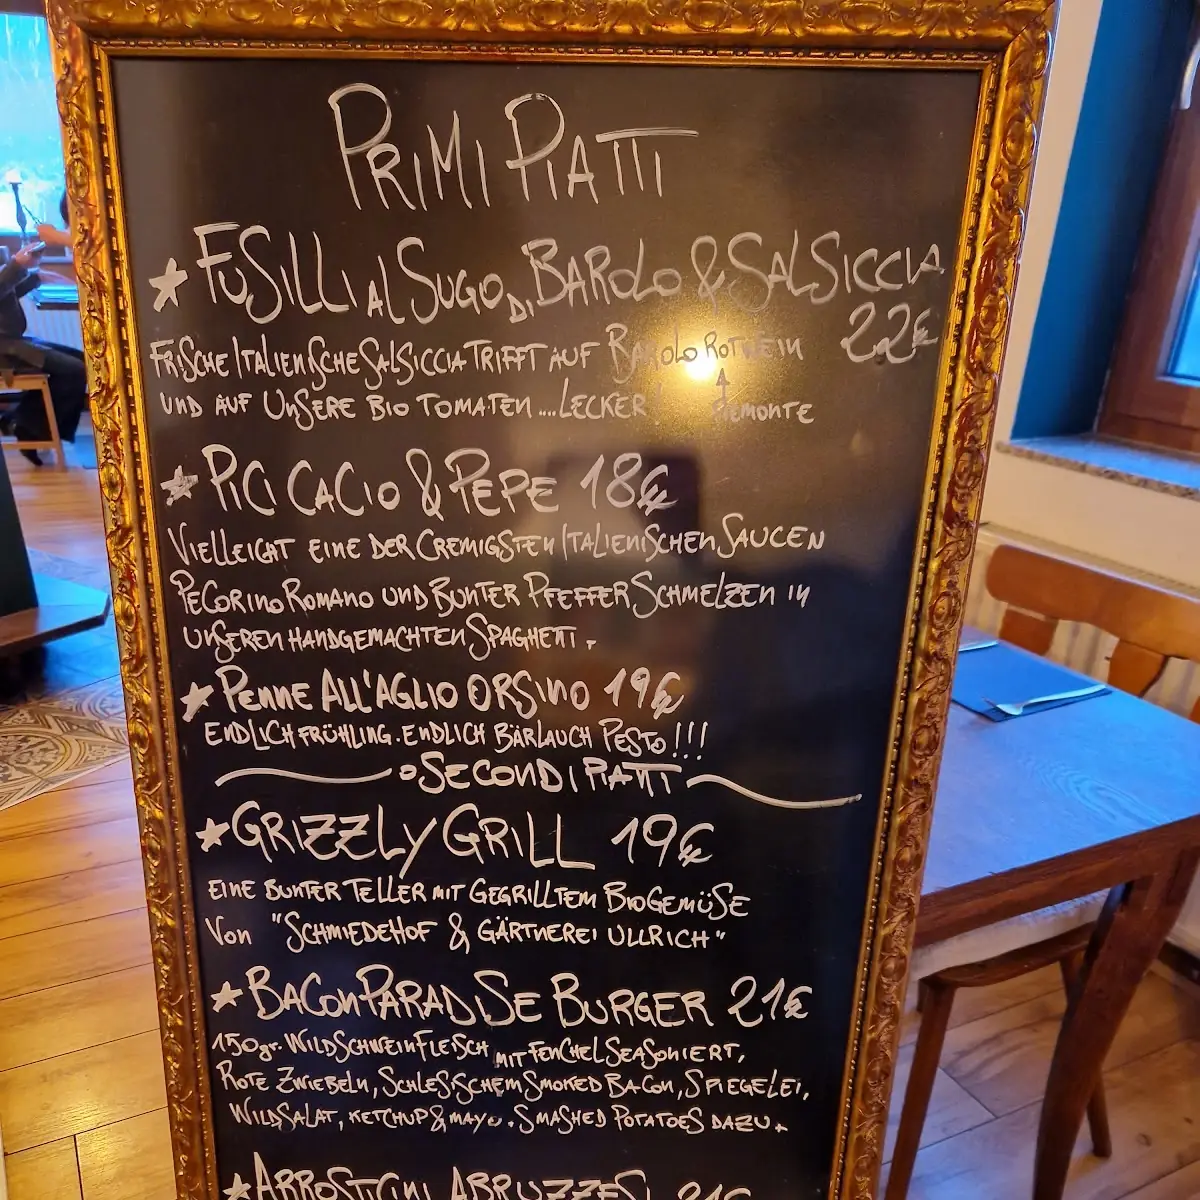 PRIMI PIATTI
★ FUSILLI AL SUGO DI BAROLO & SALSICCIA
22€
FRISCHE ITALIENISCHE SALSICCIA TRIFFT AUF BAROLO ROTWEIN
UND AUF UNSERE BIO TOMATEN....LECKER! PIEMONTE
★ PICI CACIO & PEPE 18€
VIELLEICHT EINE DER CREMIGSTEN ITALIENISCHEN SAUCEN
PECORINO ROMANO UND BUNTER PFEFFER SCHMELZEN IN
UNSEREN HANDGEMACHTEN SPAGHETTI.
★ PENNE ALL'AGLIO ORSINO 19€
ENDLICH FRÜHLING. ENDLICH BÄRLAUCH PESTO!!!
SECONDI PIATTI
★ GRIZZLY GRILL 19€
EINE BUNTER TELLER MIT GEGRILLTEM BIOGEMÜSE
VON "SCHMIEDEHOF & GÄRTNEREI ULLRICH"
★ BACONPARADISE BURGER 21€
150gr. WILDSCHWEINFLEISCH MIT FENCHEL SEASONIERT,
ROTE ZWIEBELN, SCHLESISCHEM SMOKED BACON, SPIEGELEI,
WILDSALAT, KETCHUP & MAYO. SMASHED POTATOES DAZU.
★ ARROSTICINI ABRUZZESI 21€